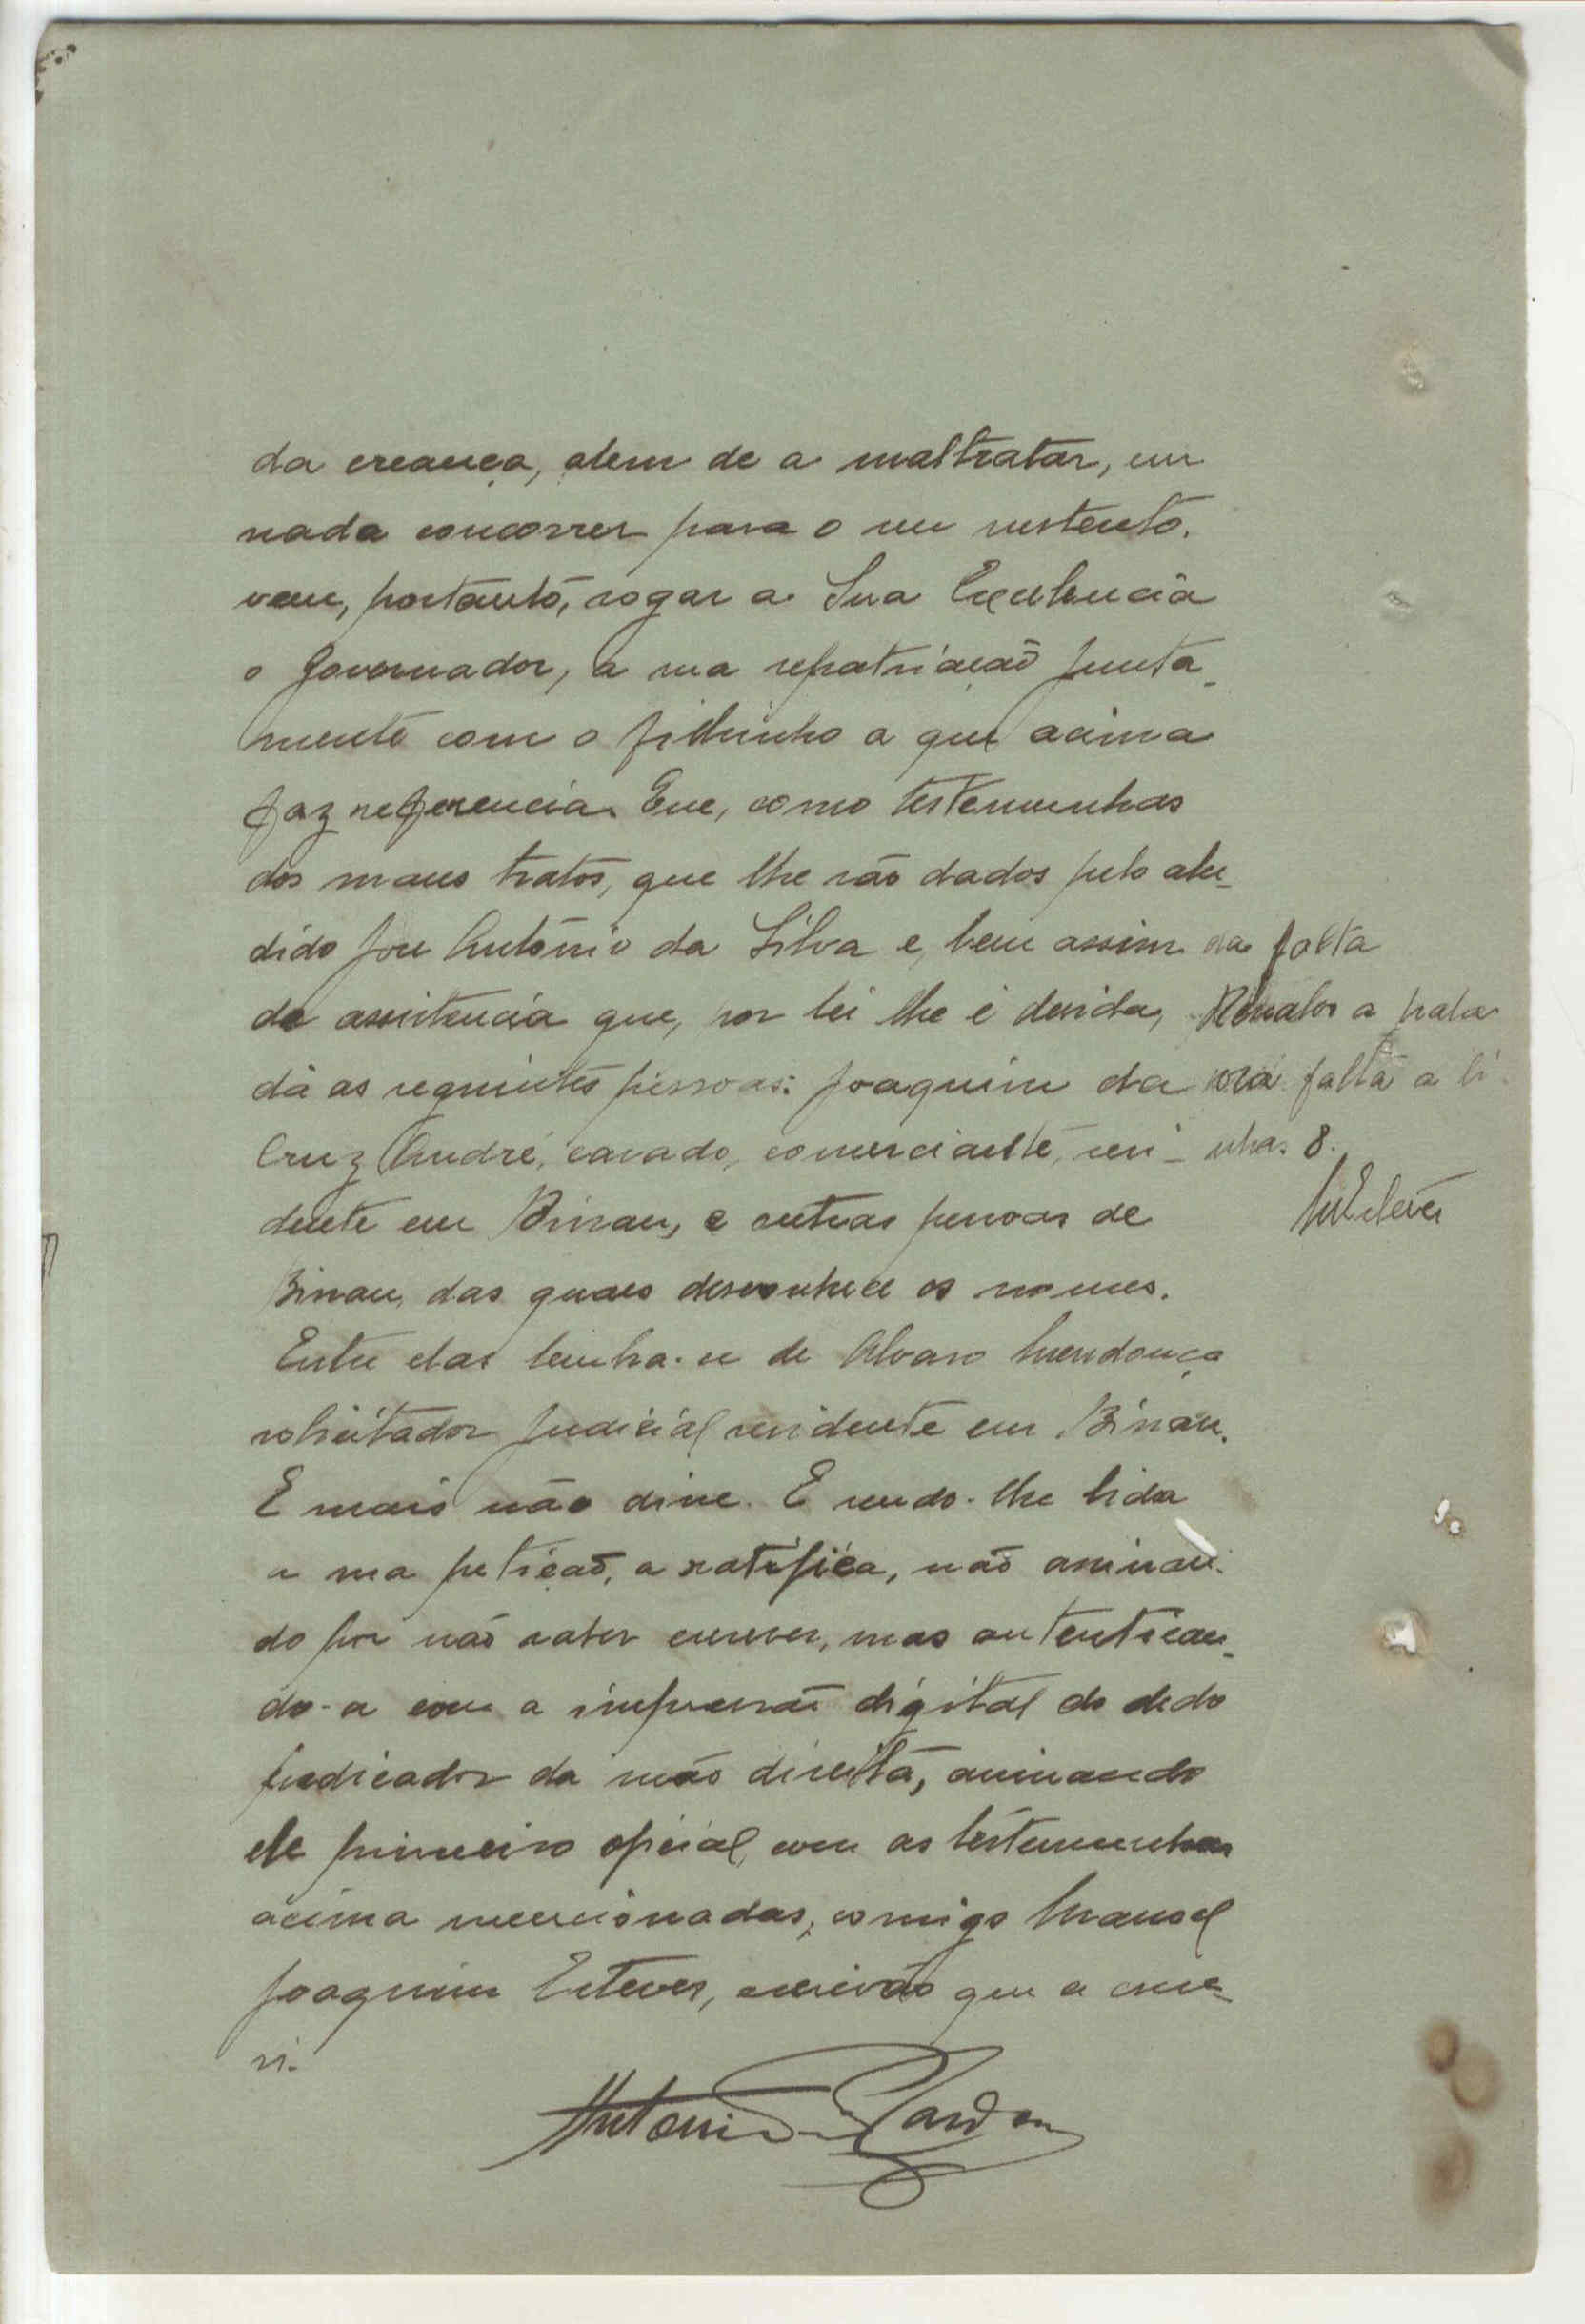 da creança, alem de a maltratar, em
nada concorrer para o seu sustento,
vem, portanto, rogar a Sua Excelencia
o Governador, a sua repatriação junta_
mente com o filhinho a que acima
faz referencia. Que, como testemunhas
dos maus tratos, que lhe são dados pelo alu_
dido José António da Silva e, bem assim da falta
de assistencia que, por lei lhe é devida,
dá as seguintes pessoas: Joaquim da
Cruz André, casado, comerciante, resi_
dente em Bissau, e outras pessoas de
Bissau, das quaes desconhece os nomes.
Entre elas lembra-se de Alvaro Mendonça
solicitador judicial residente em Bissau.
E mais não disse. E sendo-lhe lida
a sua petição, a ratifica, não assinan-
do por não saber escrever, mas autentican_
do-a com a impressão digital do dedo
indicador da mão direita, assinando
ele primeiro oficial, com as testemunhas
acima mencionadas, comigo Manoel
Joaquim Esteves, escrivão que a escre_
vi.
Ressalvo a palavra
falta a li-
nha. 8.
MEsteves
Antonio Cardoso